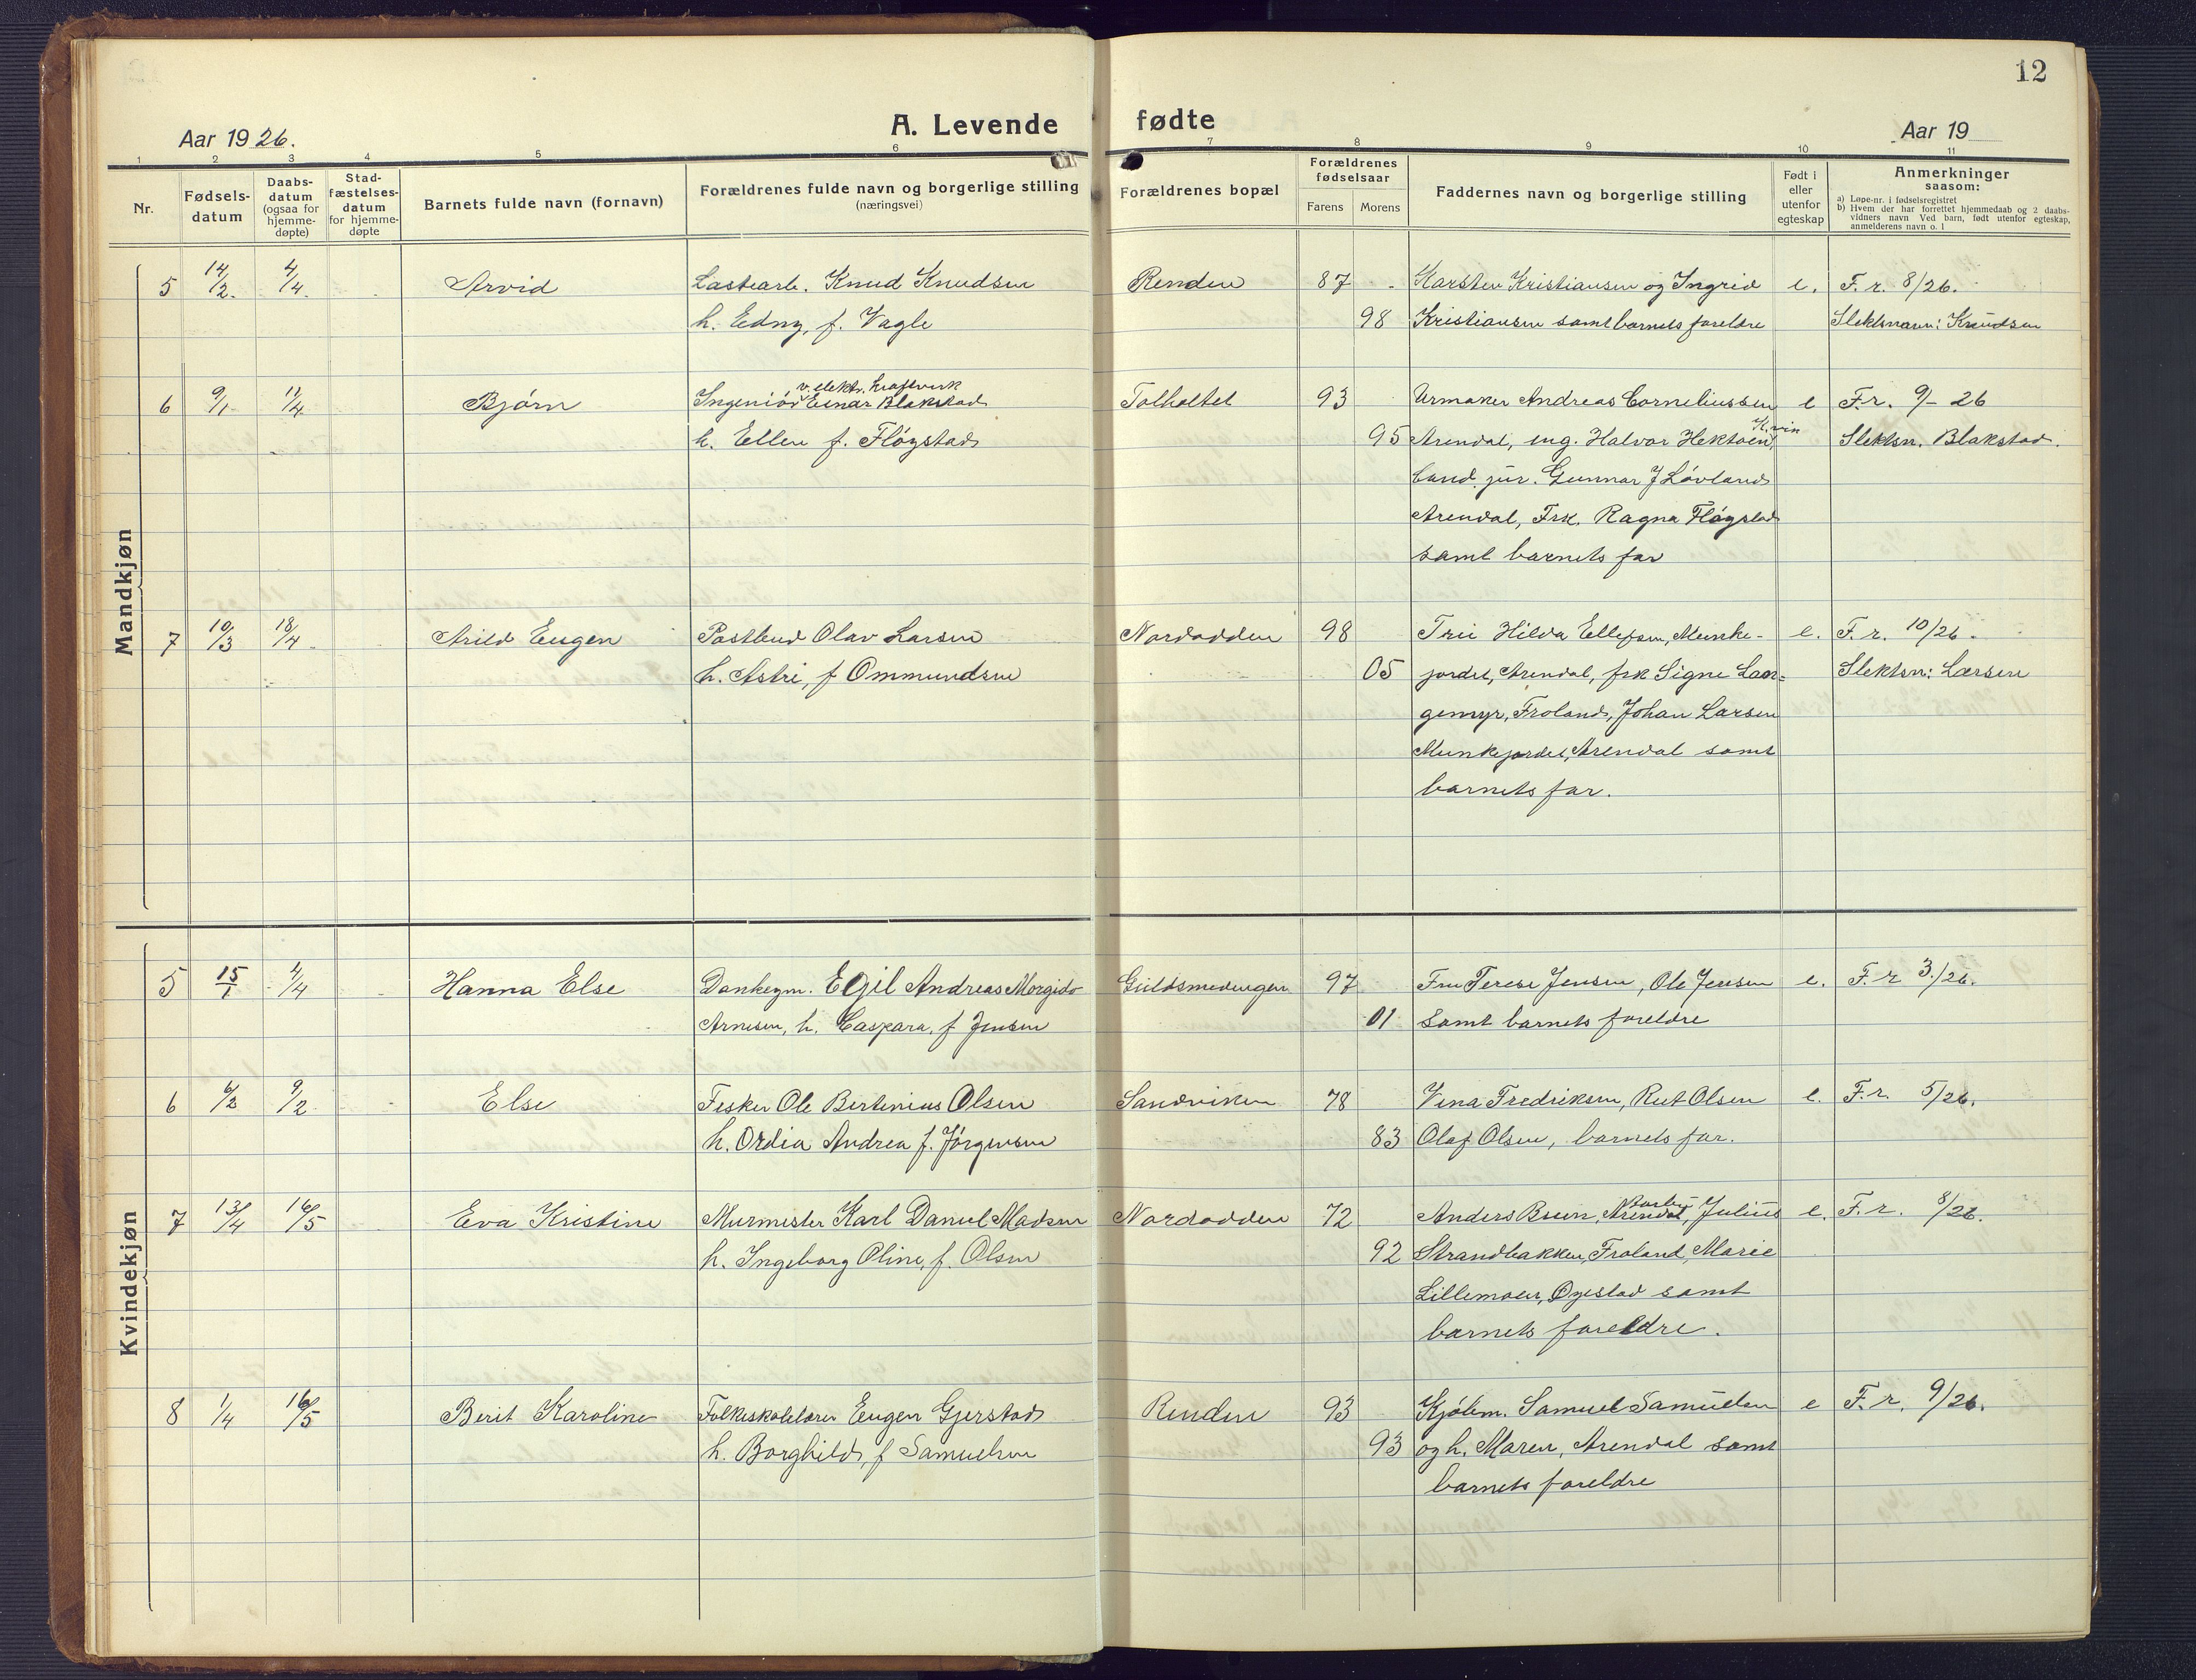 12
A. Levende fødte
Aar 1926.
Aar 19
1 2 3 4 5 6 7 8 9 10 11
Nr.
Fødsels-
datum
Daabs-
datum
(ogsaa for
hjemme-
døpte)
Stad-
fæstelses-
datum
for hjemme-
døpte
Barnets fulde navn (fornavn)
Forældrenes fulde navn og borgerlige stilling
(næringsvei)
Forældrenes bopæl
Forældrenes
fødselsaar
Farens Morens
Faddernes navn og borgerlige stilling
Født i
eller
utenfor
egteskap
Anmerkninger
saasom:
a) Løpe-nr. i fødselsregistret
b) Hvem der har forrettet hjemmedaab og 2 daabs-
vidners navn Ved barn, født utenfor egteskap,
anmelderens navn o. l
Mandkjøn
5 14/2. 4/4. Arvid Lastearb. Knud Knudsen Renden 87 Karsten Kristiansen og Ingrid e. F. r. 8/26.
h. Edny, f. Vagle 98 Kristiansen samt barnets foreldre Slektsnavn: Knudsen
v. elektr. kraftverk
6 9/1 11/4 Bjørn Ingeniør Einar Blakstad Tolholtet 93 Urmaker Andreas Corneliussen e F. r. 9/- 26
h. Ellen f. Fløystad 95 Arendal, ing. Halvor Hektoen, Slektsn. Blakstad.
Cand. jur. Gunnar J Løvland
Arendal, Frk. Ragna Fløystad
samt barnets far
7 10/3 18/4 Arild Eugen Postbud Olav Larsen Nordodden 98 Hilda Ellefsen, Munke- e. F. r. 10/26.
h. Astri, f Ommundsen 05 jordet, Arendal, frk Signe Lan-
Slektsn: Larsen
gemyr, Froland, Johan Larsen
Munkejordet, Arendal samt
barnets far.
Kvindekjøn
5 15/1 4/4 Hanna Else Dankeym. Egil Andreas Morgido Guldsmedengen 97 Fru Terese Jensen, Ole Jensen e. F. r 3/26.
Arnesen, h. Caspara, f Jensen 01 samt barnets foreldre
6 6/2 9/2 Else Fisker Ole Bertinius Olsen Sandviken 78 Vena Fredriksen, Rut Olsen e. F. r. 5/26.
h. Ordia Andrea f. Jørgensen 83 Olaf Olsen, barnets far.
7 13/4 16/5 Eva Kristine Murmester Karl Daniel Madsen Nordodden 72 Anders Bruun, Barbu, Julius e. F. r. 8/26.
h. Ingeborg Oline, f. Olsen 92 Strandbakken, Froland, Marie
Lillemoen, Øyestad samt
barnets foreldre.
8 1/4 16/5 Berit Karoline Folkeskolelærer Eugen Gjerstad Renden 93 Kjøbm. Samuel Samuelsen e F. r. 9/26.
h. Borghild, f Samuelsen 93 og h. Maren, Arendal samt
barnets foreldre